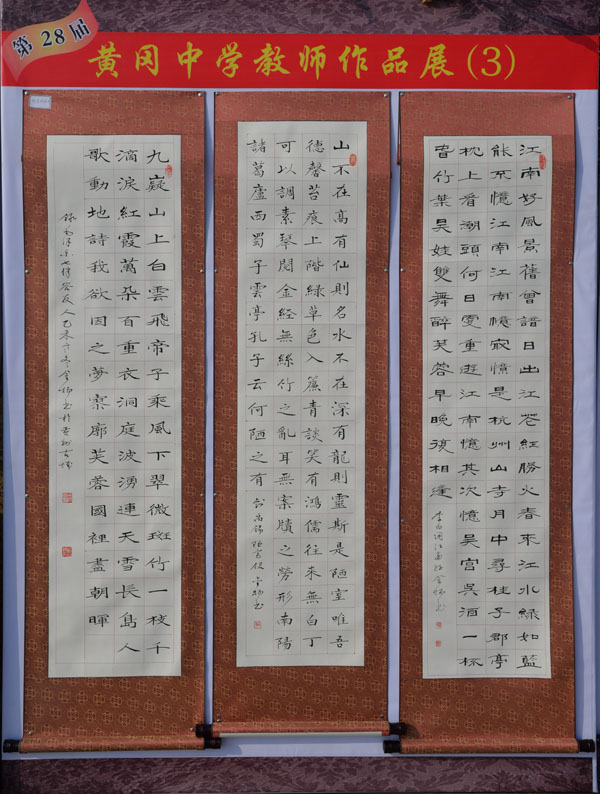 第28届
黄冈中学教师作品展(3)
江南好風景舊曾諳日出江花紅勝火春來江水綠如藍
能不憶江南江南憶最憶是杭州山寺月中尋桂子郡亭
枕上看潮頭何日更重遊江南憶其次憶吳宮吳酒一杯
春竹葉吳娃雙舞醉芙蓉早晚復相逢
山不在高有仙則名水不在深有龍則靈斯是陋室唯吾
德馨苔痕上階綠草色入簾青談笑有鴻儒往來無白丁
可以調素琴閱金經無絲竹之亂耳無案牘之勞形南陽
諸葛廬西蜀子雲亭孔子云何陋之有
九嶷山上白雲飛帝子乘風下翠微斑竹一枝千
滴淚紅霞萬朵百重衣洞庭波湧連天雪長島人
歌動地詩我欲因之夢寥廓芙蓉國裡盡朝暉